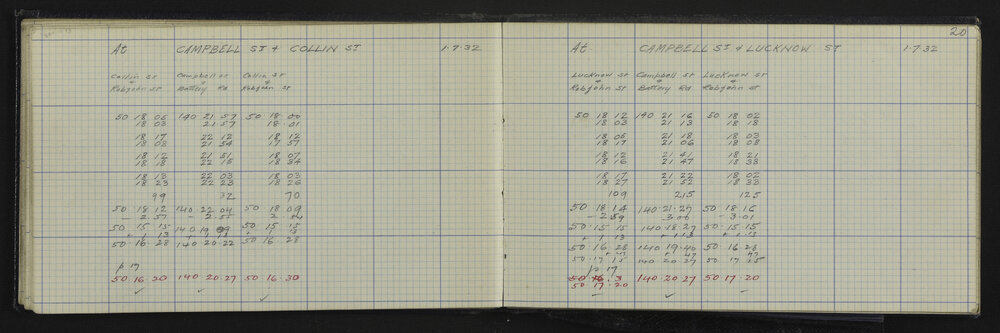 At CAMPBELL ST & COLLIN ST 1·7·32
Collin St Campbell St Collin St
& & &
Robjohn St Battery Rd Robjohn St
50 18 05 140 21 57 50 18 00
18 03 21·57 18·01
18 17 22 12 18 12
18 08 21 54 17 57
18 12 21 51 18 07
18 18 22 15 18 34
18 13 22 03 18 03
18 23 22 23 18 26
99 32 70
50·18 12 140·22 04 50 18 09
50 15 15
50·16·28 140 20·22 50 16 28
p 17
50·16·30 140·20·27 50·16·30
20
At CAMPBELL ST & LUCKNOW ST 1·7·32
Lucknow St Campbell St Lucknow St
& & &
Robjohn St Battery Rd Robjohn St
50 18 12 140 21 16 50 18 02
18 03 21 13 18 18
18 05 21 18 18 03
18 17 21 06 18 08
18 12 21 41 18 21
18 16 21 47 18 33
18 17 21 22 18 02
18 27 21 52 18 33
109 215 125
50·18 14 140·21·27 50·18·16
– 2 59 3·00 – 3·01
50·15·15 140·18 27 50·15·15
+ 1 13 + 1 13 + 1 13
50·16 28 140 19·40 50·16 28
+ 47 + 47 47
50·17 15 140 20 27 50 17 15
p 17
140·20·27 50·17·20
50 17·20